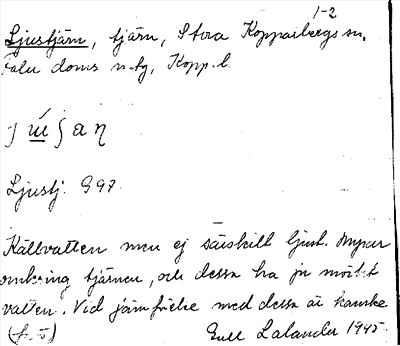 1-2
Ljustjärn, tjärn, Stora Kopparbergs sn,
Falu doms. n tg, Kopp. l.
Ljustj. G 97.
Källvatten men ej särskilt ljust. Myrar
omkring tjärnen, och dessa ha ju mörkt
vatten. Vid jämförelse med dessa är kanske
(f. ö)
Gull Lalander 1945